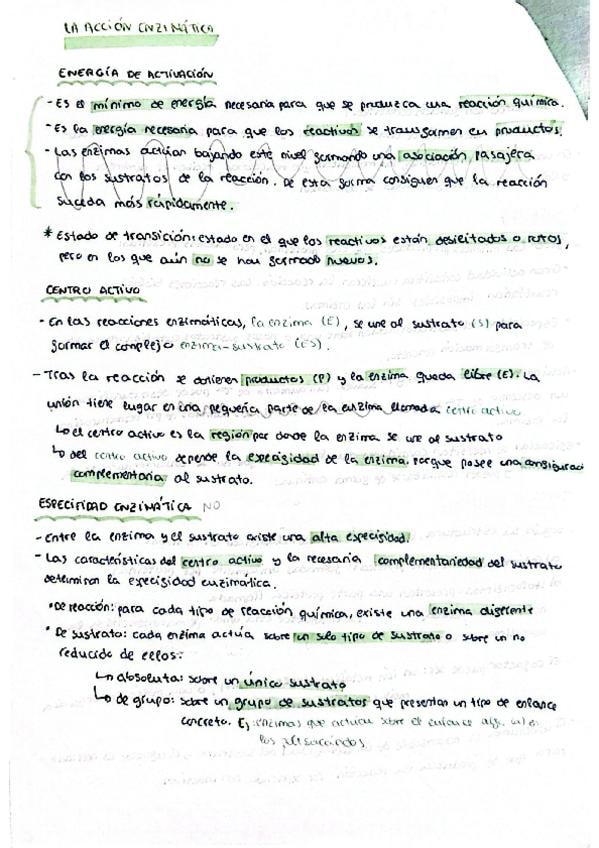 LA ACCIÓN ENZIMÁTICA
ENERGÍA DE ACTIVACIÓN
- Es el mínimo de energía necesaria para que se produzca una reacción química.
- Es la energía necesaria para que los reactivos se transformen en productos.
- Las enzimas actúan bajando este nivel formando una asociación pasajera
con los sustratos de la reacción. De esta forma consiguen que la reacción
suceda más rápidamente.
* Estado de transición: estado en el que los reactivos están debilitados o rotos,
pero en los que aún no se han formado nuevos.
CENTRO ACTIVO
- En las reacciones enzimáticas, la enzima (E), se une al sustrato (S) para
formar el complejo enzima-sustrato (ES).
- Tras la reacción se obtienen productos (P) y la enzima queda libre (E). La
unión tiene lugar en una pequeña parte de la enzima llamada centro activo
↳ el centro activo es la región por donde la enzima se une al sustrato
↳ del centro activo depende la especifidad de la enzima. Porque posee una configuraci
complementaria al sustrato.
ESPECIFIDAD ENZIMÁTICA NO
- Entre la enzima y el sustrato existe una alta especifidad.
- Las características del centro activo y la necesaria complementariedad del sustrato
determinan la especifidad enzimática.
• De reacción: para cada tipo de reacción química, existe una enzima diferente
• De sustrato: cada enzima actúa sobre un solo tipo de sustrato o sobre un no
reducido de ellos:
↳ absoluta: sobre un único sustrato
↳ de grupo: sobre un grupo de sustratos que presentan un tipo de enlance
concreto. Ej: enzimas que actúan sobre el enlance
los